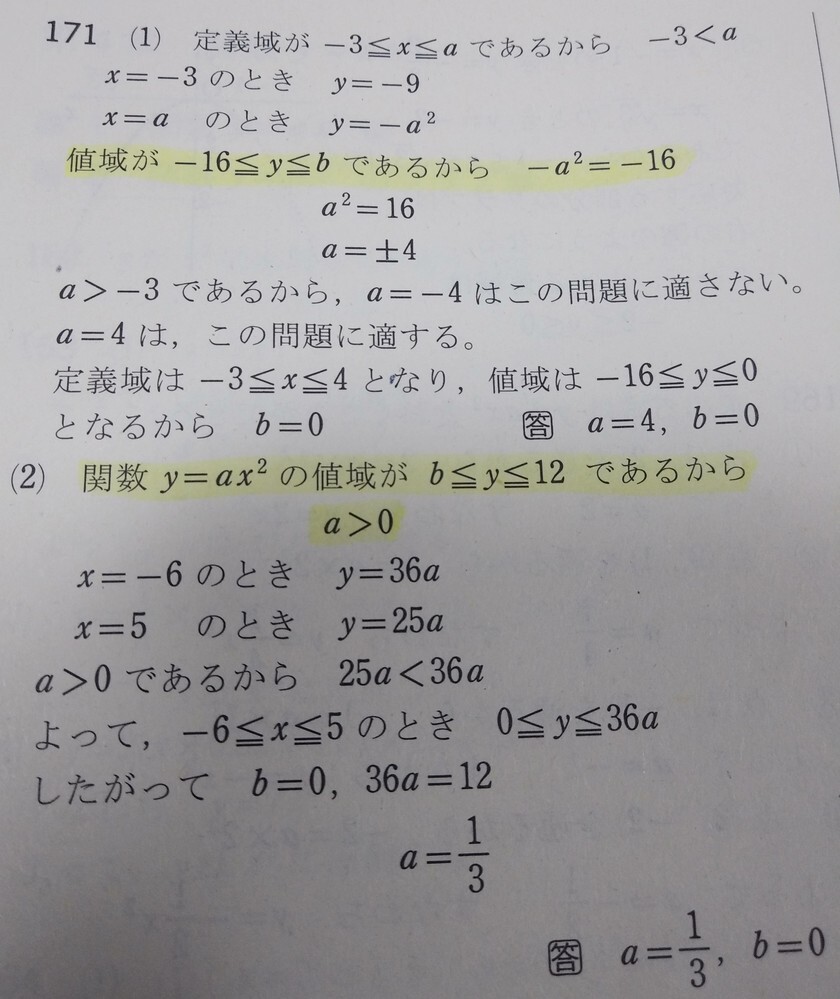 171 (1) 定義域が −3≦x≦a であるから −3<a
x=−3 のとき y=−9
x=a のとき y=−a²
値域が −16≦y≦b であるから −a²=−16
a²=16
a=±4
a>−3 であるから，a=−4 はこの問題に適さない。
a=4 は，この問題に適する。
定義域は −3≦x≦4 となり，値域は −16≦y≦0
となるから b=0 答 a=4, b=0
(2) 関数 y=ax² の値域が b≦y≦12 であるから
a>0
x=−6 のとき y=36a
x=5 のとき y=25a
a>0 であるから 25a<36a
よって，−6≦x≦5 のとき 0≦y≦36a
したがって b=0, 36a=12
a=1/3
答 a=1/3, b=0